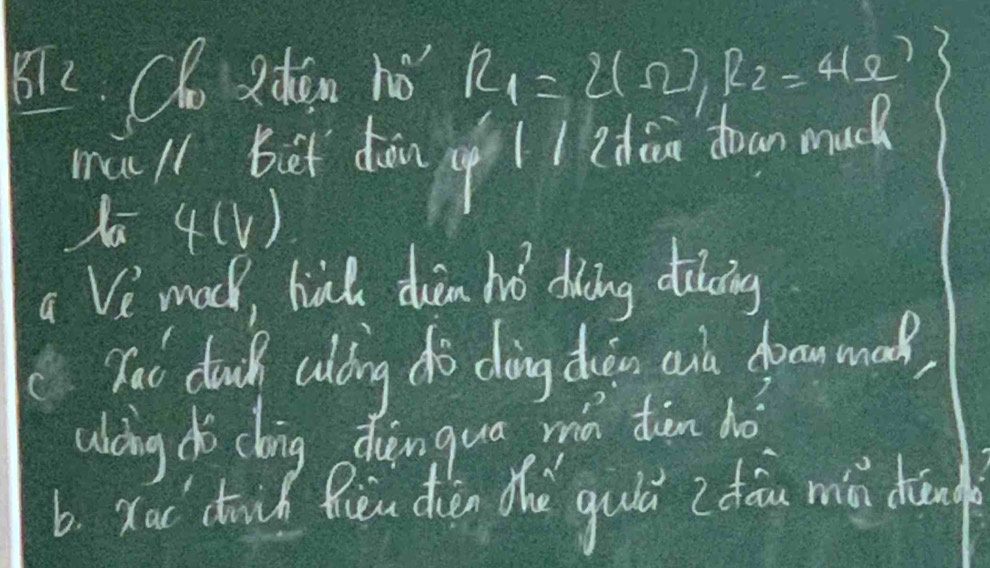 BT2: Cho 2 điện trở R1 = 2(Ω), R2 = 4(Ω)
mắc // Biết điện áp 2 đầu đoạn mạch
là 4(V)
a Vẽ mạch, tính điện trở tương đương
c Xác định cường độ dòng điện của đoạn mạch,
cường độ dòng điện qua mỗi điện trở
b. Xác định hiệu điện thế giữa 2 đầu mỗi điện trở